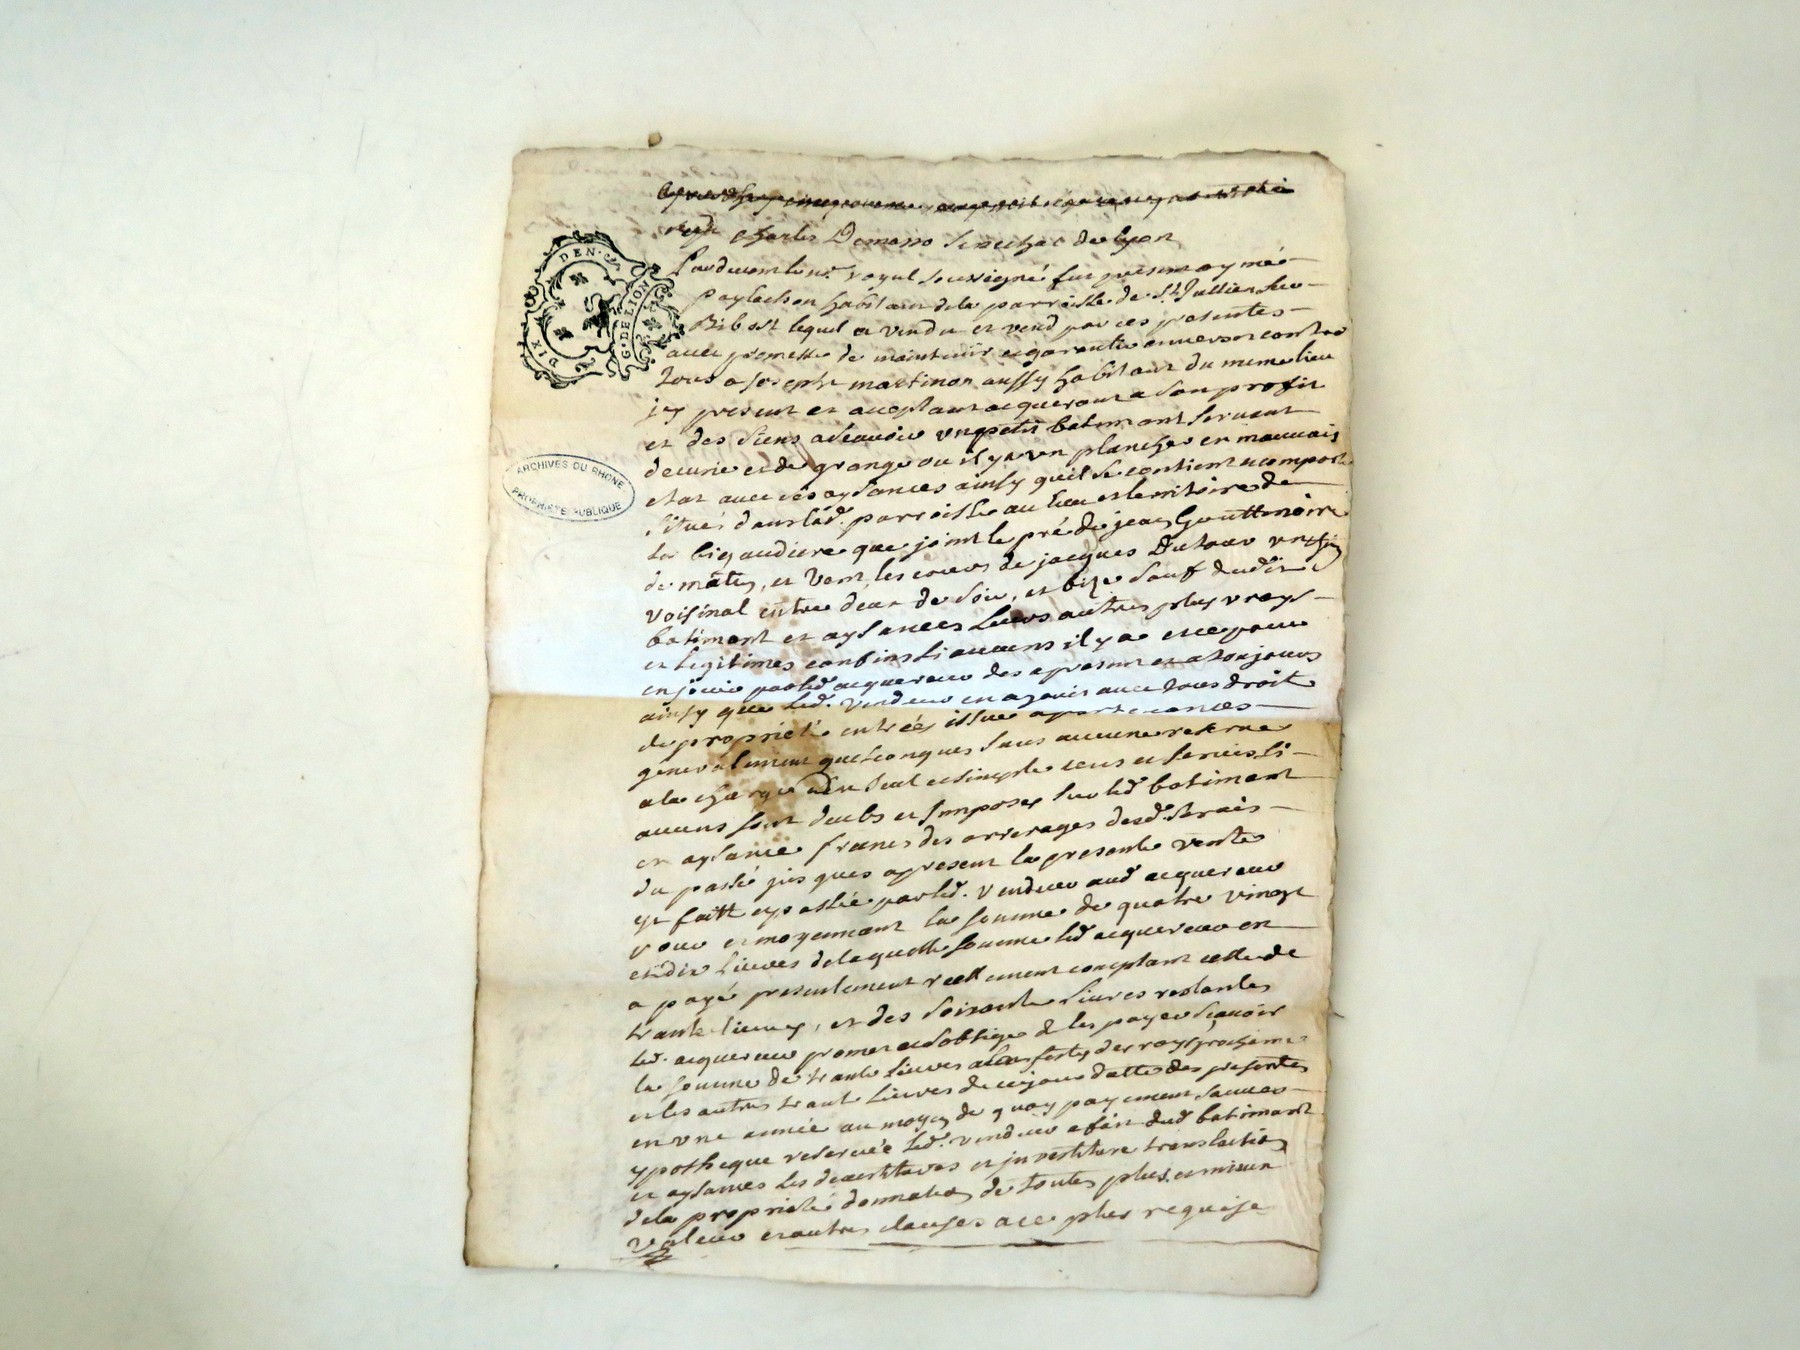 Charles Demasso Senechal de Lyon
Pardevant le no.re royal soussigné fut present aymé
paylachon habitant de la parroisse de St Jullien sur
Bibost lequel a vendu et vend par ces presentes
avec promesse de maintenir et garentir envers et contre
tous a Joseph martinon aussy habitant du meme lieu
jcy present et acceptant acquerant a son profit
et des siens a scavoir un petit batimant servant
decurie et de grange ou il y a un plancher en mauvais
etat avec ces aysances ainsy quil se contient et comporte
situés dans lad. parroisse au lieu et territoire de
la bigaudiere que joint le pré de jean Gouttenoire
de matin, et vent, les cours de jacques Dutour un chemin
voisinal entre deux de soir, et bize sauf dudit
batimant et aysances leurs autres plus vrays
et legitimes confins si aucuns il y a et ce pour
en jouir par led acquereur des apresent et a toujours
ainsy que led. vendeur en a jouis avec tous droit
de proprieté entrées issue apartenances
generalement quelconques sans aucune reserve
a la charge du seul et simple cens et servis si
aucuns sont deubs et imposes sur led batimant
et aysance francs des arrerages desd. servis
du passé jusques apresent la presente vente
est faitte et passée par led. vendeur aud acquereur
pour et moyennant la somme de quatre vingt
et dix livres de laquelle somme led acquereur en
a payé presentement reellement comptant celle de
trante livres, et des soixante livres restantes
led. acquereur promet et soblige de les payer sçavoir
la somme de trante livres a les festes des roys prochaine
et les autres trante livres de ce jour datte des presentes
en une année au moyen de quoy payement sauver
ypotheque reservée led. vendeur a fait dud batimant
et aysances les devestitures et jnvestiture translation
de la proprieté donnation de toutes plus et mieux
valeur et autres clauses a ce plus requise
DIX DEN.
G. DE LION
ARCHIVES DU RHONE
PROPRIETE PUBLIQUE